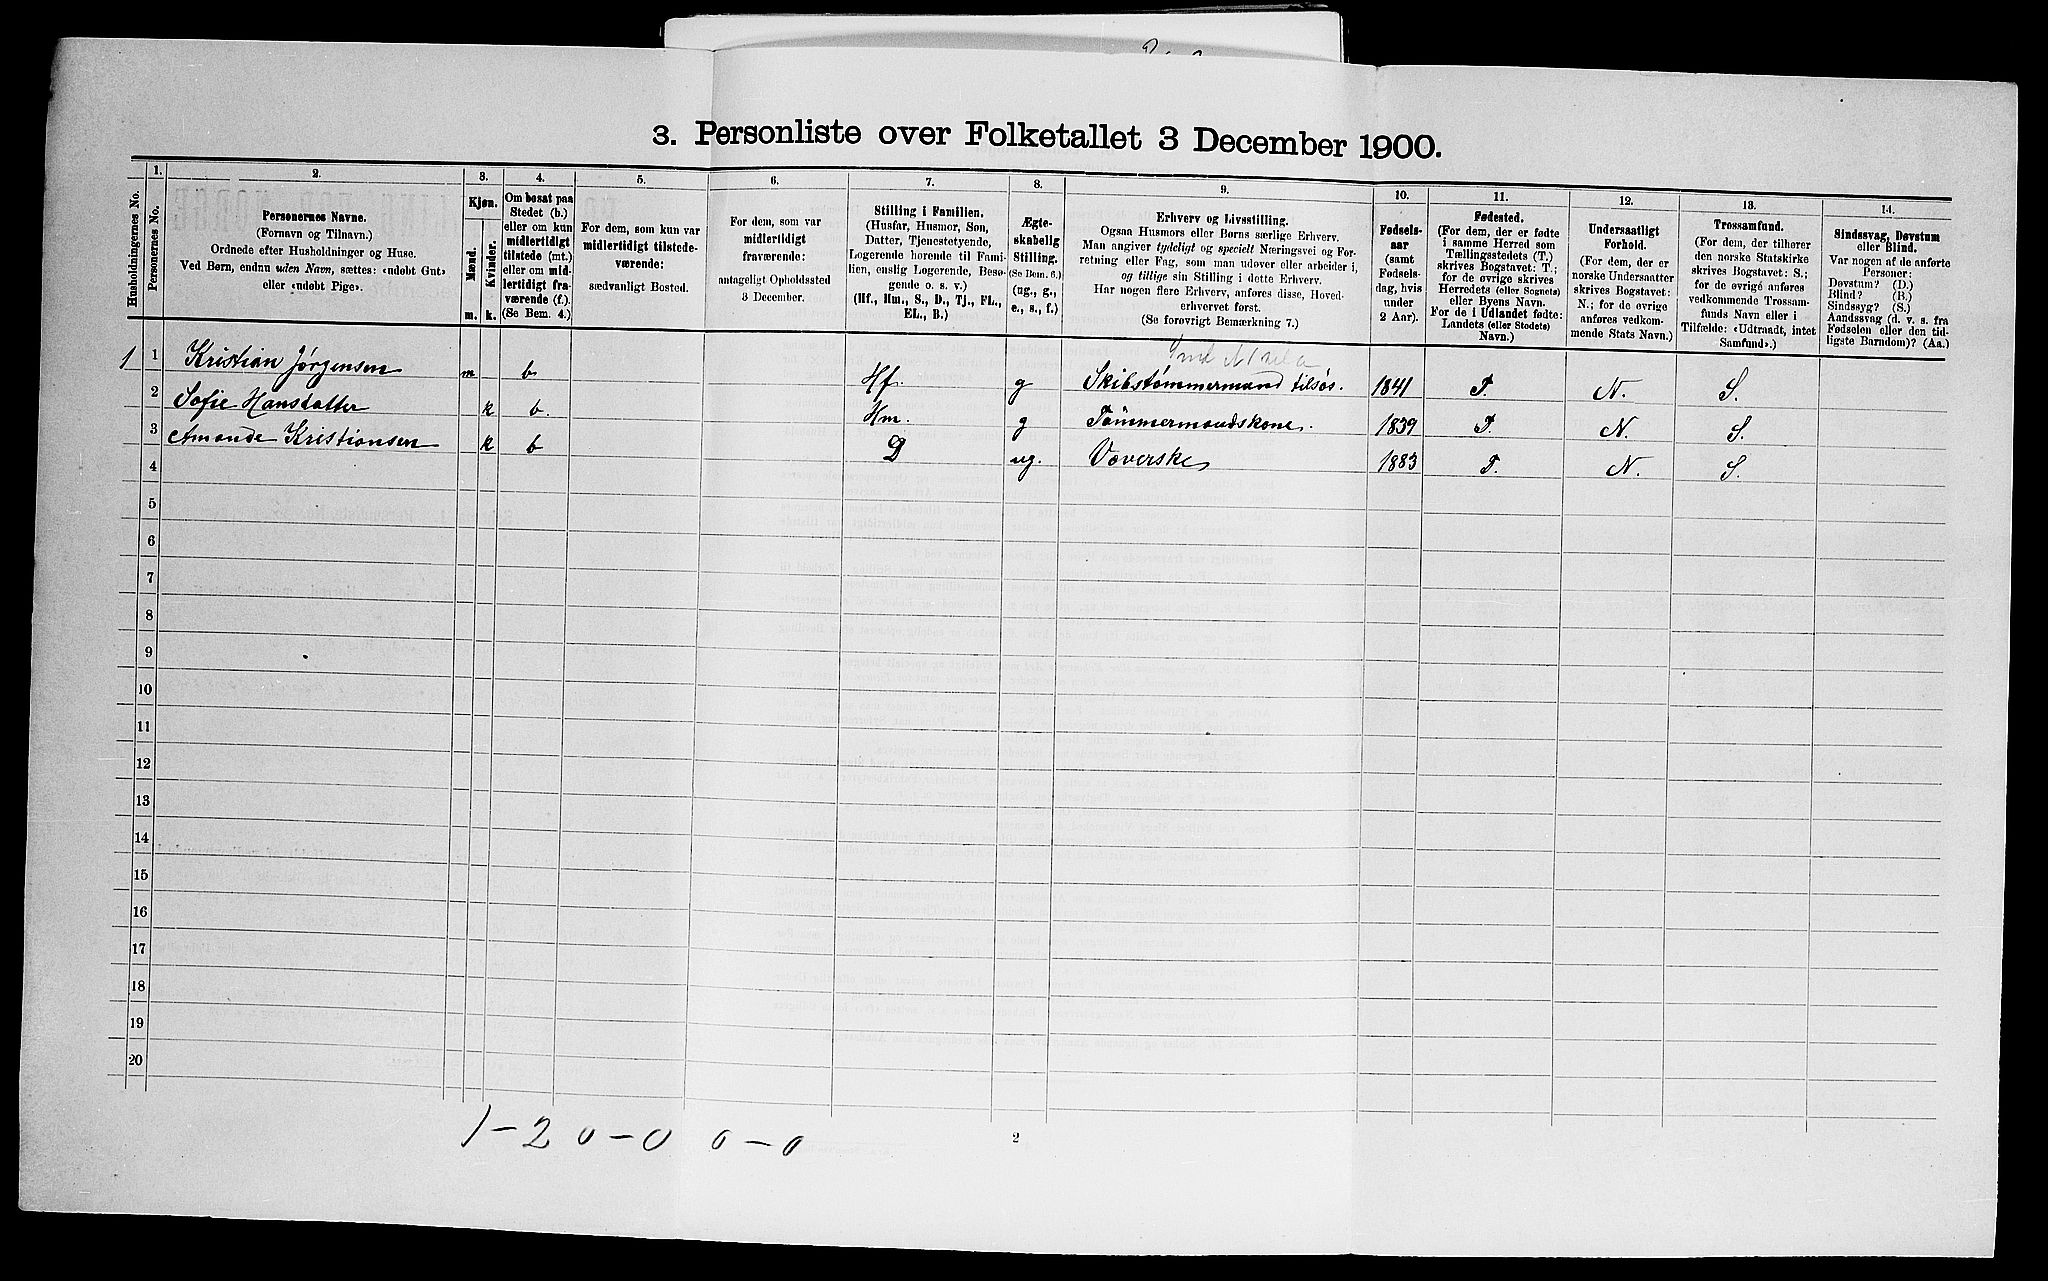 3. Personliste over Folketallet 3 December 1900.
Husholdningernes No.
1.
Personernes No.
2.
Personernes Navne.
(Fornavn og Tilnavn.)
Ordnede efter Husholdninger og Huse.
Ved Børn, endnu uden Navn, sættes: «udøbt Gut»
eller «udøbt Pige».
3.
Kjøn.
Mænd.
Kvinder.
m.
k.
4.
Om bosat paa
Stedet (b.)
eller om kun
midlertidigt
tilstede (mt.)
eller om mid-
lertidigt fra-
værende (f.).
(Se Bem. 4.)
5.
For dem, som kun var
midlertidigt tilstede-
værende:
sædvanligt Bosted.
6.
For dem, som var
midlertidigt
fraværende:
antageligt Opholdssted
3 December.
7.
Stilling i Familien.
(Husfar, Husmor, Søn,
Datter, Tjenestetyende,
Logerende hørende til Fami-
lien, enslig Logerende, Besø-
gende o. s. v.)
(Hf., Hm., S., D., Tj., FL.,
EL., B.)
8.
Ægte-
skabelig
Stilling.
(Se Bem. 6.)
(ug., g.,
e., s., f.)
9.
Erhverv og Livsstilling.
Ogsaa Husmors eller Børns særlige Erhverv.
Man angiver tydeligt og specielt Næringsvei og For-
retning eller Fag, som man udøver eller arbeider i,
og tillige sin Stilling i dette Erhverv.
Har nogen flere Erhverv, anføres disse, Hoved-
erhvervet først.
(Se forøvrigt Bemærkning 7.)
10.
Fødsels-
aar
(samt
Fødsels-
dag, hvis
under
2 Aar).
11.
Fødested.
(For dem, der er fødte
i samme Herred som
Tællingsstedets (T.)
skrives Bogstavet: T.;
for de øvrige skrives
Herredets (eller Sognets)
eller Byens Navn.
For de i Udlandet fødte:
Landets (eller Stedets)
Navn.)
12.
Undersaatligt
Forhold.
(For dem, der er
norske Undersaatter
skrives Bogstavet:
N.; for de øvrige
anføres vedkom-
mende Stats Navn.)
13.
Trossamfund.
(For dem, der tilhører
den norske Statskirke
skrives Bogstavet: S.;
for de øvrige anføres
vedkommende Trossam-
funds Navn eller i
Tilfælde: «Udtraadt, intet
Samfund».)
14.
Sindssvag, Døvstum
eller Blind.
Var nogen af de anførte
Personer:
Døvstum? (D.)
Blind? (B.)
Sindssyg? (S.)
Aandssvag (d. v. s. fra
Fødselen eller den tid-
ligste Barndom)? (Aa.)
1 1 Kristian Jørgensen m b Hf. g Skibstømmermand tilsøs. 1841 T. N. S.
2 Sofie Hansdatter k b. Hm. g Tømmermandskone. 1839 T. N. S.
3 Amande Kristiansen k b D ug. Væverske 1883 T. N. S.
4
5
6
7
8
9
10
11
12
13
14
15
16
17
18
19
20
1 - 2 0 - 0 0 - 0
2